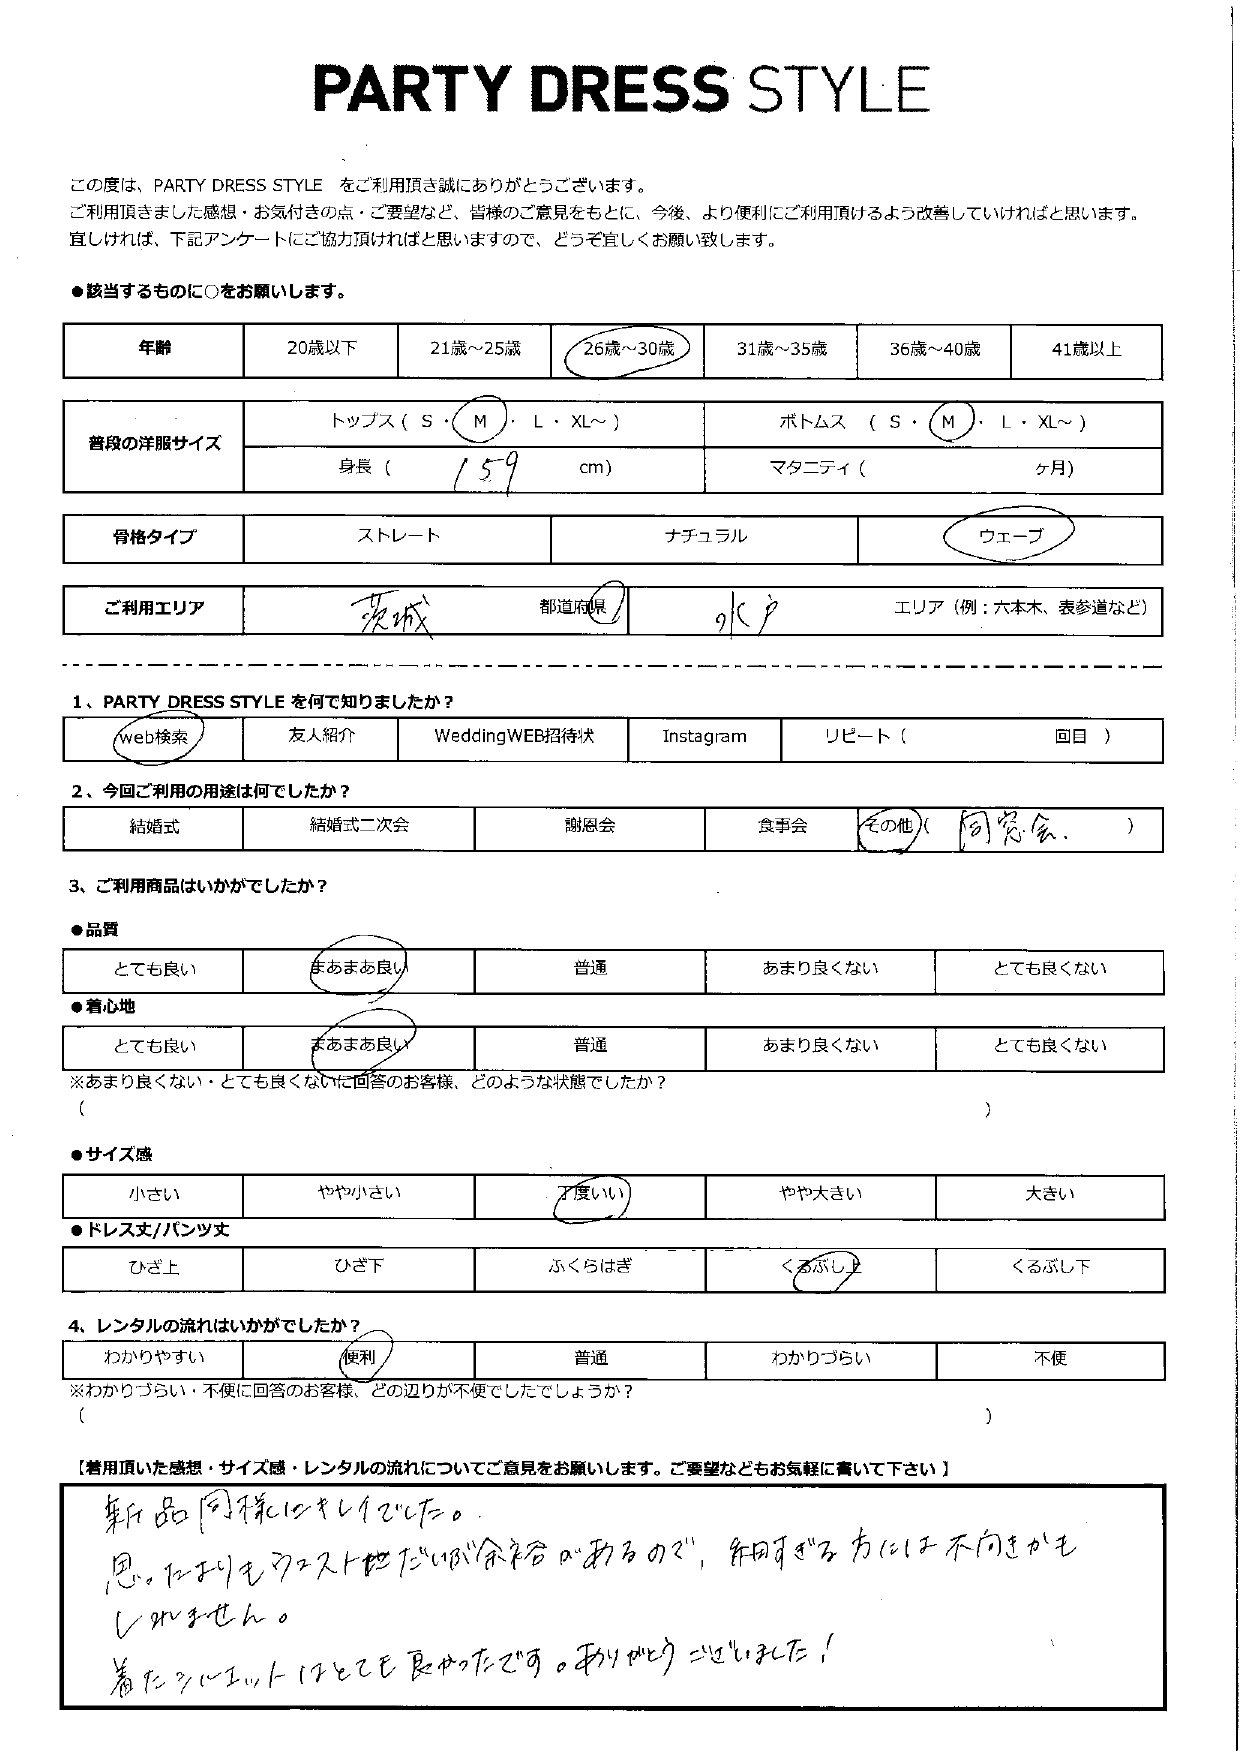 PARTY DRESS STYLE
この度は、PARTY DRESS STYLE をご利用頂き誠にありがとうございます。
ご利用頂きました感想・お気付きの点・ご要望など、皆様のご意見をもとに、今後、より便利にご利用頂けるよう改善していければと思います。
宜しければ、下記アンケートにご協力頂ければと思いますので、どうぞ宜しくお願い致します。
●該当するものに○をお願いします。
年齢 20歳以下 21歳～25歳 26歳～30歳 31歳～35歳 36歳～40歳 41歳以上
普段の洋服サイズ トップス ( S ・ M ・ L ・ XL～ ) ボトムス ( S ・ M ・ L ・ XL～ )
身長 ( 159 cm) マタニティ ( ヶ月)
骨格タイプ ストレート ナチュラル ウェーブ
ご利用エリア 茨城 都道府県 水戸 エリア（例：六本木、表参道など）
1、PARTY DRESS STYLE を何で知りましたか？
web検索 友人紹介 WeddingWEB招待状 Instagram リピート ( 回目 )
2、今回ご利用の用途は何でしたか？
結婚式 結婚式二次会 謝恩会 食事会 その他 ( 同窓会. )
3、ご利用商品はいかがでしたか？
●品質
とても良い まあまあ良い 普通 あまり良くない とても良くない
●着心地
とても良い まあまあ良い 普通 あまり良くない とても良くない
※あまり良くない・とても良くないに回答のお客様、どのような状態でしたか？
( )
●サイズ感
小さい やや小さい 丁度いい やや大きい 大きい
●ドレス丈/パンツ丈
ひざ上 ひざ下 ふくらはぎ くるぶし上 くるぶし下
4、レンタルの流れはいかがでしたか？
わかりやすい 便利 普通 わかりづらい 不便
※わかりづらい・不便に回答のお客様、どの辺りが不便でしたでしょうか？
( )
【着用頂いた感想・サイズ感・レンタルの流れについてご意見をお願いします。ご要望などもお気軽に書いて下さい 】
新品同様にキレイでした。
思ったよりもウエスト がだいぶ余裕があるので、細すぎる方には不向きかも
しれません。
着たシルエットはとても良かったです。ありがとうございました！